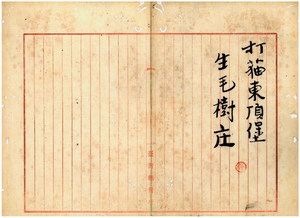 打猫東頂堡
生毛樹庄